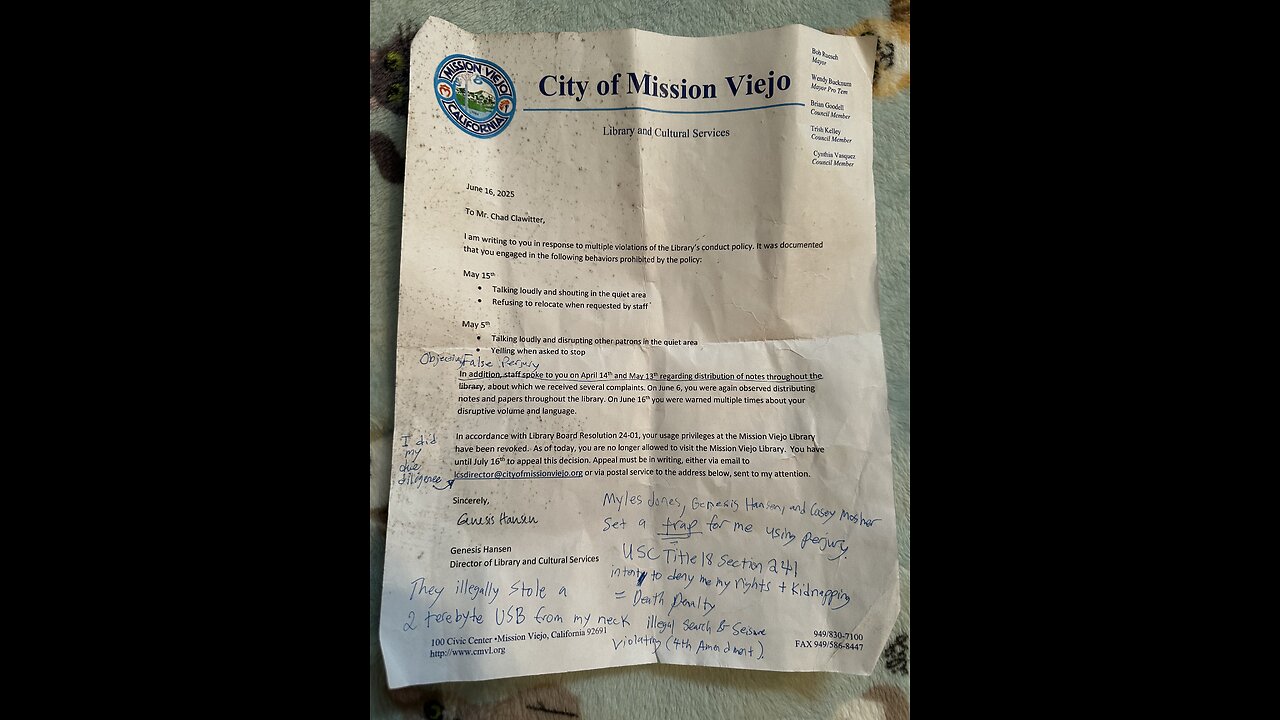 MISSION VIEJO
CALIFORNIA
City of Mission Viejo
Library and Cultural Services
Bob Ruesch
Mayor
Wendy Bucknum
Mayor Pro Tem
Brian Goodell
Council Member
Trish Kelley
Council Member
Cynthia Vasquez
Council Member
June 16, 2025
To Mr. Chad Clawitter,
I am writing to you in response to multiple violations of the Library's conduct policy. It was documented
that you engaged in the following behaviors prohibited by the policy:
May 15th
• Talking loudly and shouting in the quiet area
• Refusing to relocate when requested by staff
May 5th
• Talking loudly and disrupting other patrons in the quiet area
• Yelling when asked to stop
False Perjury
In addition, staff spoke to you on April 14th and May 13th regarding distribution of notes throughout the
library, about which we received several complaints. On June 6, you were again observed distributing
notes and papers throughout the library. On June 16th you were warned multiple times about your
disruptive volume and language.
I did
my
due
diligence
In accordance with Library Board Resolution 24-01, your usage privileges at the Mission Viejo Library
have been revoked. As of today, you are no longer allowed to visit the Mission Viejo Library. You have
until July 16th to appeal this decision. Appeal must be in writing, either via email to
lcsdirector@cityofmissionviejo.org or via postal service to the address below, sent to my attention.
Sincerely,
Genesis Hansen
Genesis Hansen
Director of Library and Cultural Services
Myles Jones, Genesis Hansen, and Casey Mosher
Set a trap for me using perjury.
USC Title 18 Section 241
intent to deny me my rights + Kidnapping
= Death Penalty
They illegally stole a
2 terebyte USB from my neck illegal search & Seisure
violating (4th Amendment).
100 Civic Center •Mission Viejo, California 92691
http://www.cmvl.org
949/830-7100
FAX 949/586-8447